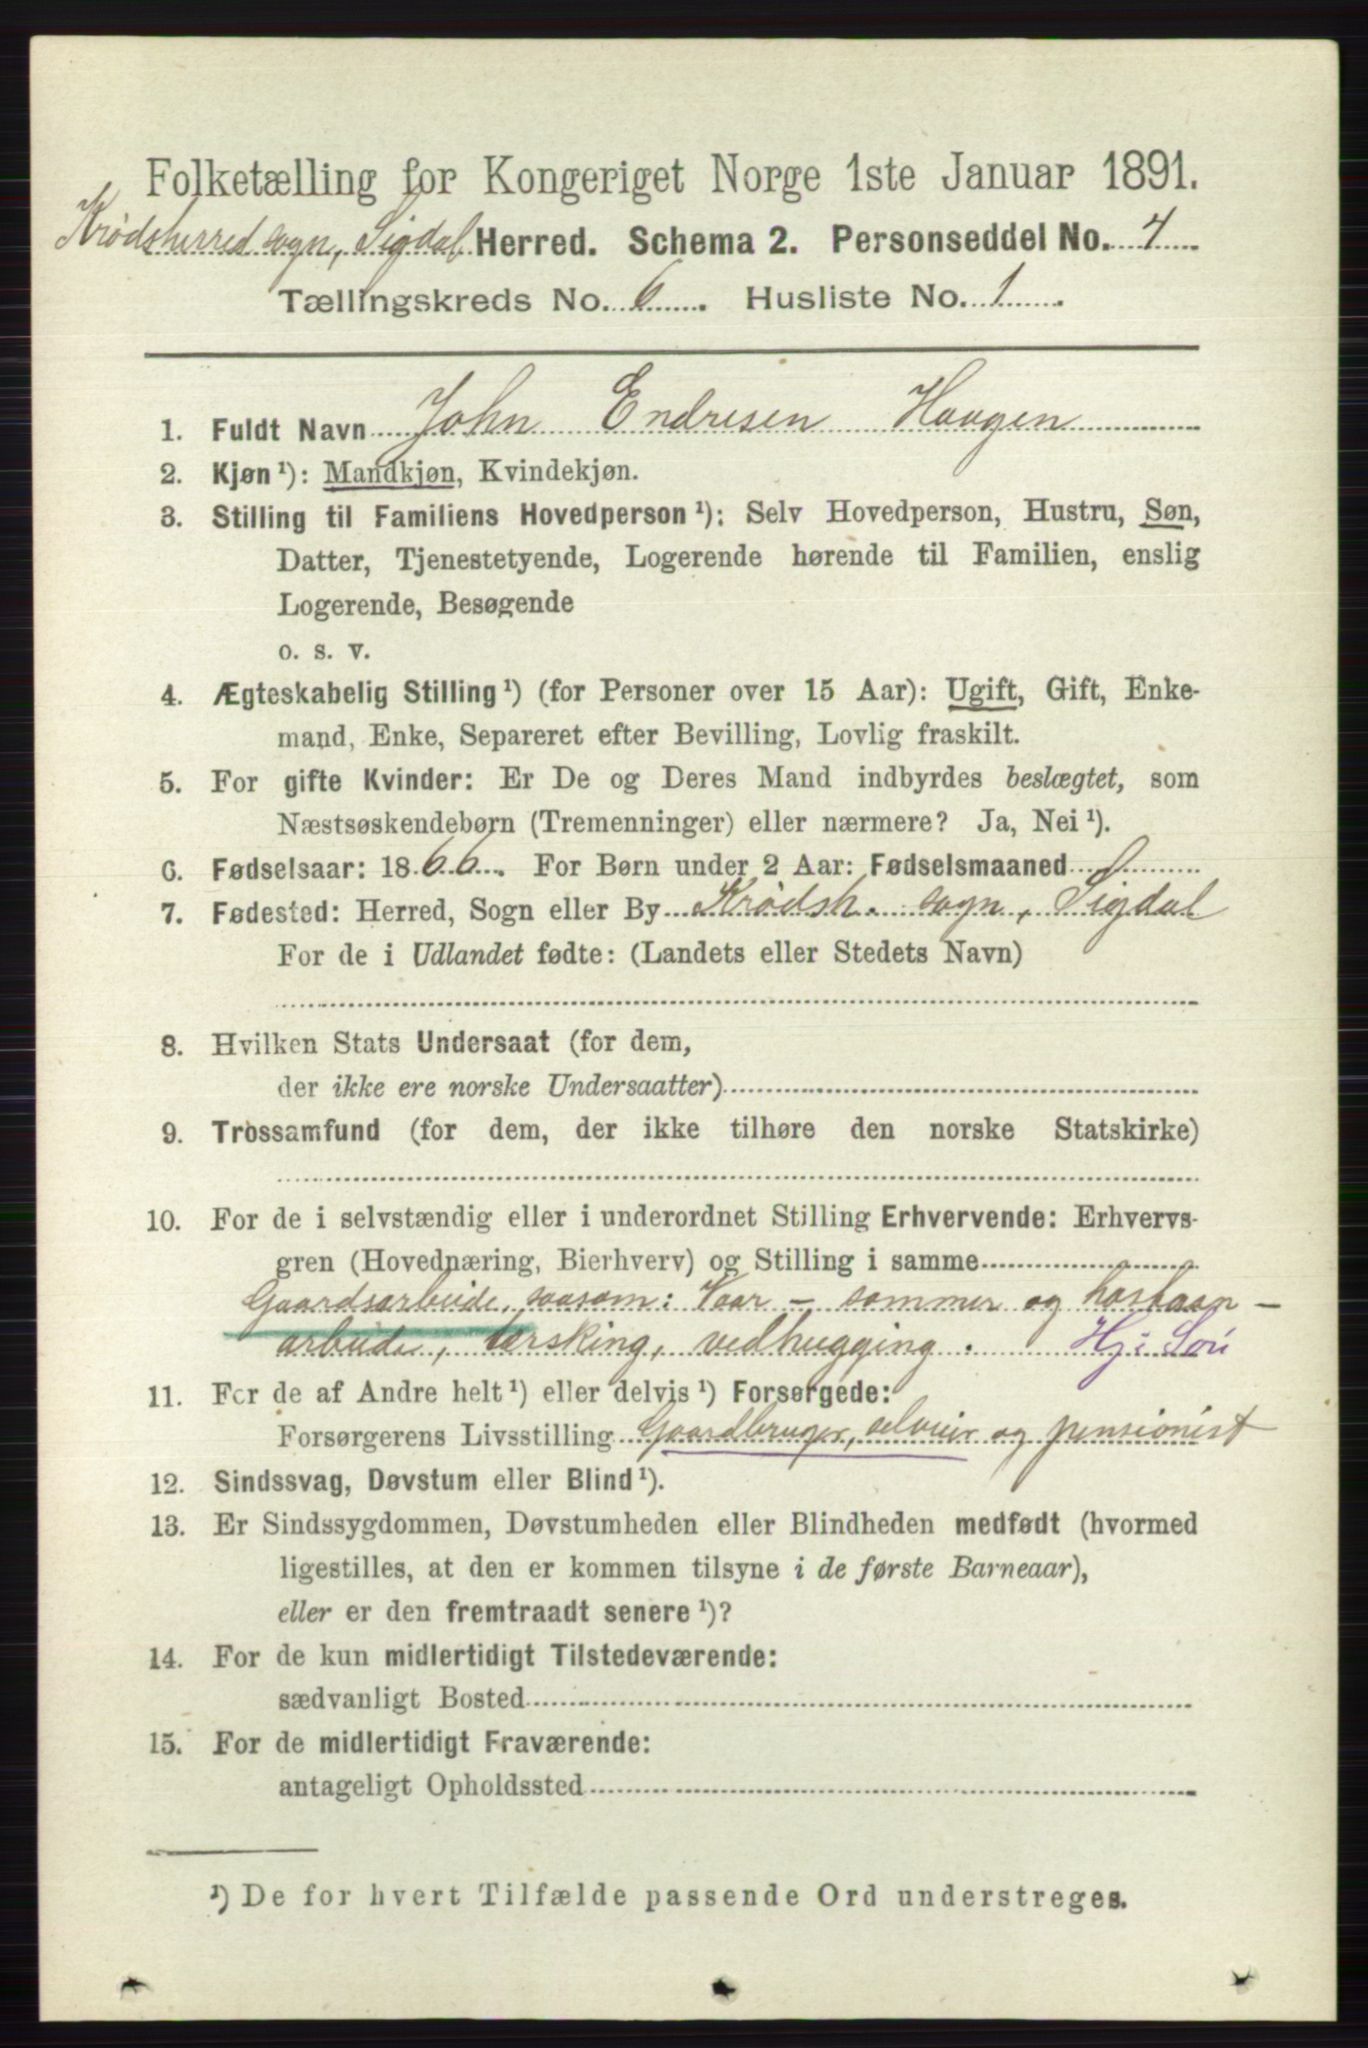 Folketælling for Kongeriget Norge 1ste Januar 1891.
Krødsherred sogn, Sigdal Herred. Schema 2. Personseddel No. 4
Tællingskreds No. 6. Husliste No. 1.
1. Fuldt Navn John Endresen Haugen
2. Kjøn ¹): Mandkjøn, Kvindekjøn.
3. Stilling til Familiens Hovedperson ¹): Selv Hovedperson, Hustru, Søn,
Datter, Tjenestetyende, Logerende hørende til Familien, enslig
Logerende, Besøgende
o. s. v.
4. Ægteskabelig Stilling ¹) (for Personer over 15 Aar): Ugift, Gift, Enke-
mand, Enke, Separeret efter Bevilling, Lovlig fraskilt.
5. For gifte Kvinder: Er De og Deres Mand indbyrdes beslægtet, som
Næstsøskendebørn (Tremenninger) eller nærmere? Ja, Nei ¹).
6. Fødselsaar: 1866. For Børn under 2 Aar: Fødselsmaaned
7. Fødested: Herred, Sogn eller By Krødsh. sogn, Sigdal
For de i Udlandet fødte: (Landets eller Stedets Navn)
8. Hvilken Stats Undersaat (for dem,
der ikke ere norske Undersaatter)
9. Trossamfund (for dem, der ikke tilhøre den norske Statskirke)
10. For de i selvstændig eller i underordnet Stilling Erhvervende: Erhvervs-
gren (Hovednæring, Bierhverv) og Stilling i samme
Gaardsarbeide, saasom: Vaar – sommer og høstaan –
arbeide, tærsking, vedhugging. Hj: Søn
11. For de af Andre helt ¹) eller delvis ¹) Forsørgede:
Forsørgerens Livsstilling Gaardbruger, selveier og pensionist
12. Sindssvag, Døvstum eller Blind ¹).
13. Er Sindssygdommen, Døvstumheden eller Blindheden medfødt (hvormed
ligestilles, at den er kommen tilsyne i de første Barneaar),
eller er den fremtraadt senere ¹)?
14. For de kun midlertidigt Tilstedeværende:
sædvanligt Bosted
15. For de midlertidigt Fraværende:
antageligt Opholdssted
¹) De for hvert Tilfælde passende Ord understreges.